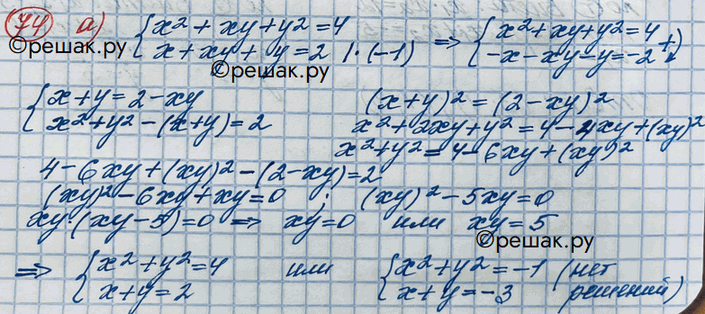 74 а) { x² + xy + y² = 4 ⇒ { x² + xy + y² = 4 +)
x + xy + y = 2 | · (-1) -x - xy - y = -2
©решак.ру
©решак.ру
{ x + y = 2 - xy (x + y)² = (2 - xy)²
x² + y² - (x + y) = 2 x² + 2xy + y² = 4 - 4xy + (xy)²
x² + y² = 4 - 6xy + (xy)²
4 - 6xy + (xy)² - (2 - xy) = 2
(xy)² - 6xy + xy = 0 ; (xy)² - 5xy = 0
xy · (xy - 5) = 0 ⇒ xy = 0 или xy = 5
©решак.ру
⇒ { x² + y² = 4 или { x² + y² = -1 (нет
x + y = 2 x + y = -3 решений)